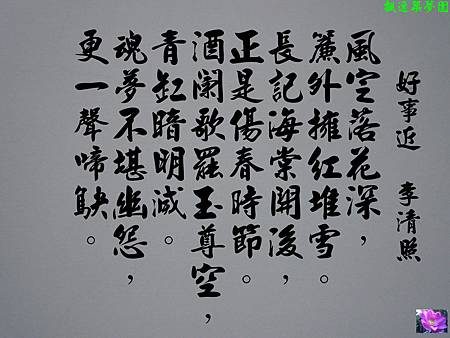 飄逸築夢園
好事近　李清照
風定落花深，
簾外擁紅堆雪。
長記海棠開後，
正是傷春時節。
酒闌歌罷玉尊空，
青缸暗明滅。
魂夢不堪幽怨，
更一聲啼鴃。